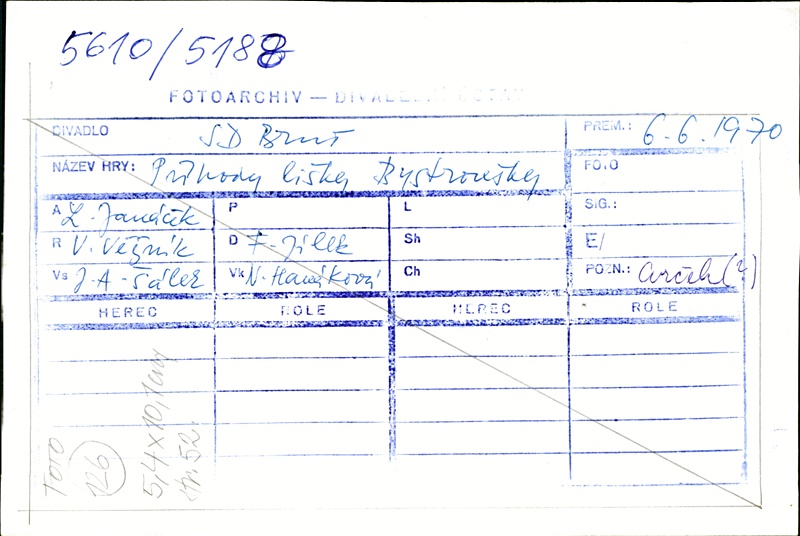 5610/5188
FOTOARCHIV — DIVADELNÍ ÚSTAV
DIVADLO SD Brno PREM.: 6.6.1970
NÁZEV HRY: Příhody lišky Bystroušky FOTO
A L. Janáček P L SIG.:
R V. Věžník D F. Jílek Sh E/
Vs J. A. Šálek Vk N. Hanáková Ch POZN.:
HEREC ROLE HEREC ROLE
TOTO
126
5,4x10,1cm
str. 52.